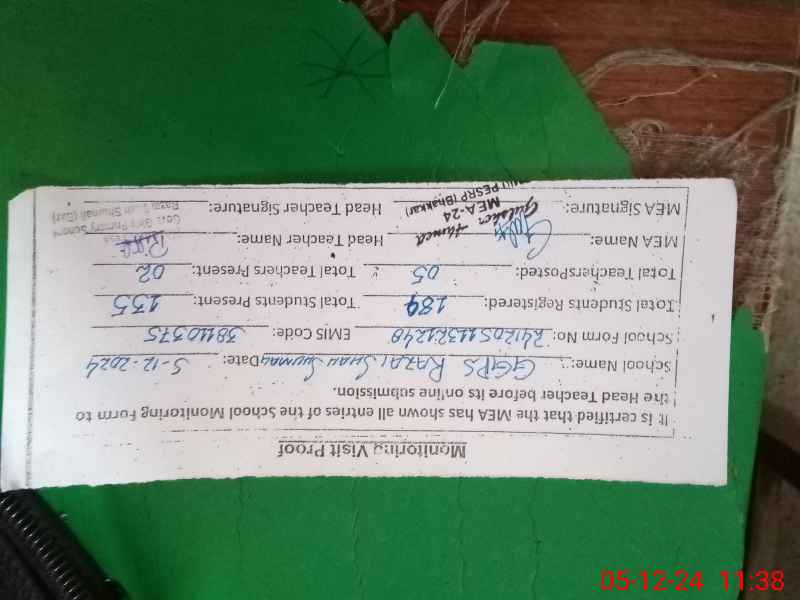 Monitoring Visit Proof
It is certified that the MEA has shown all entries of the School Monitoring Form to
the Head Teacher before its online submission.
School Name: GGPS RAZAI SHAH SHUMALI Date: 5-12-2024
School Form No: 241205113321248 EMIS Code: 38110375
Total Students Registered: 184 Total Students Present: 135
Total TeachersPosted: 05 Total Teachers Present: 02
MEA Name: Head Teacher Name:
MEA Signature: Head Teacher Signature:
MEA-24
PESRP (Bhakkar)
Govt. Girls Primary School
Shah Shumali
05-12-24 11:38